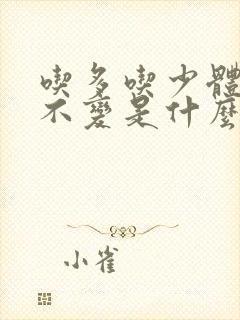 喫多喫少體
不變是什麼
小雀